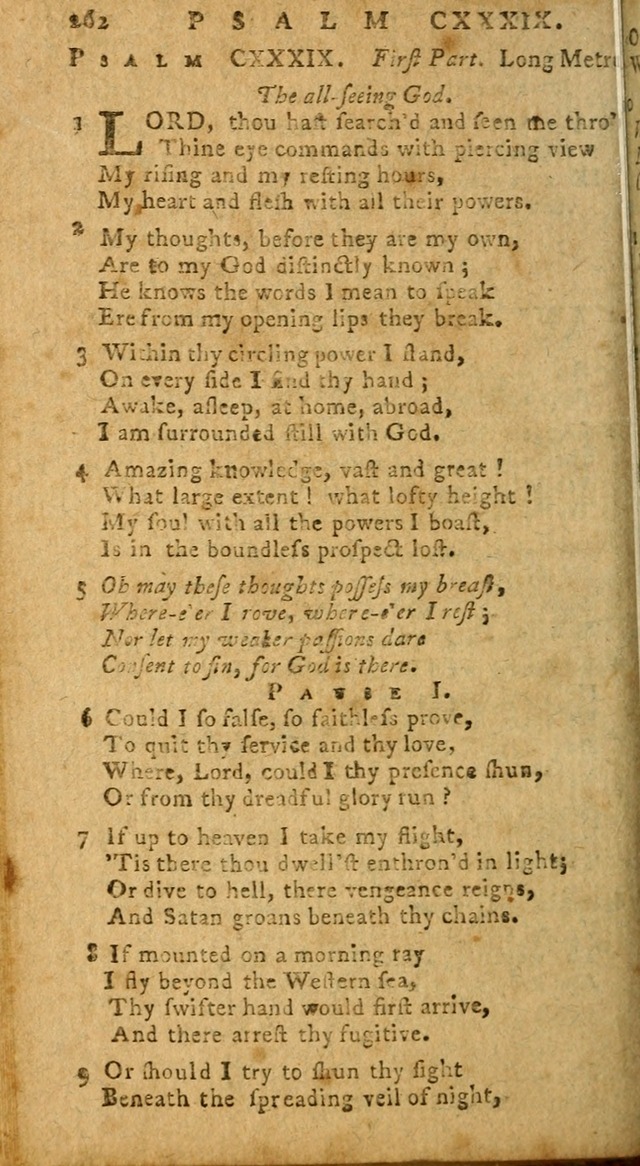 262 PSALM CXXXIX.
PSALM CXXXIX. Firſt Part. Long Metre
The all-ſeeing God.
1 LORD, thou haſt ſearch'd and ſeen me thro'
Thine eye commands with piercing view
My riſing and my reſting hours,
My heart and fleſh with all their powers.
2 My thoughts, before they are my own,
Are to my God diſtinctly known;
He knows the words I mean to ſpeak
Ere from my opening lips they break.
3 Within thy circling power I ſtand,
On every ſide I find thy hand;
Awake, aſleep, at home, abroad,
I am ſurrounded ſtill with God.
4 Amazing knowledge, vaſt and great!
What large extent! what lofty height!
My ſoul with all the powers I boaſt,
Is in the boundleſs proſpect loſt.
5 Oh may theſe thoughts poſſeſs my breaſt,
Where-e'er I rove, where-e'er I reſt;
Nor let my weaker paſſions dare
Conſent to ſin, for God is there.
PAUSE I.
6 Could I ſo falſe, ſo faithleſs prove,
To quit thy ſervice and thy love,
Where, Lord, could I thy preſence ſhun,
Or from thy dreadful glory run?
7 If up to heaven I take my flight,
'Tis there thou dwell'ſt enthron'd in light;
Or dive to hell, there vengeance reigns,
And Satan groans beneath thy chains.
8 If mounted on a morning ray
I fly beyond the Weſtern ſea,
Thy ſwifter hand would firſt arrive,
And there arreſt thy fugitive.
9 Or ſhould I try to ſhun thy ſight
Beneath the ſpreading veil of night,